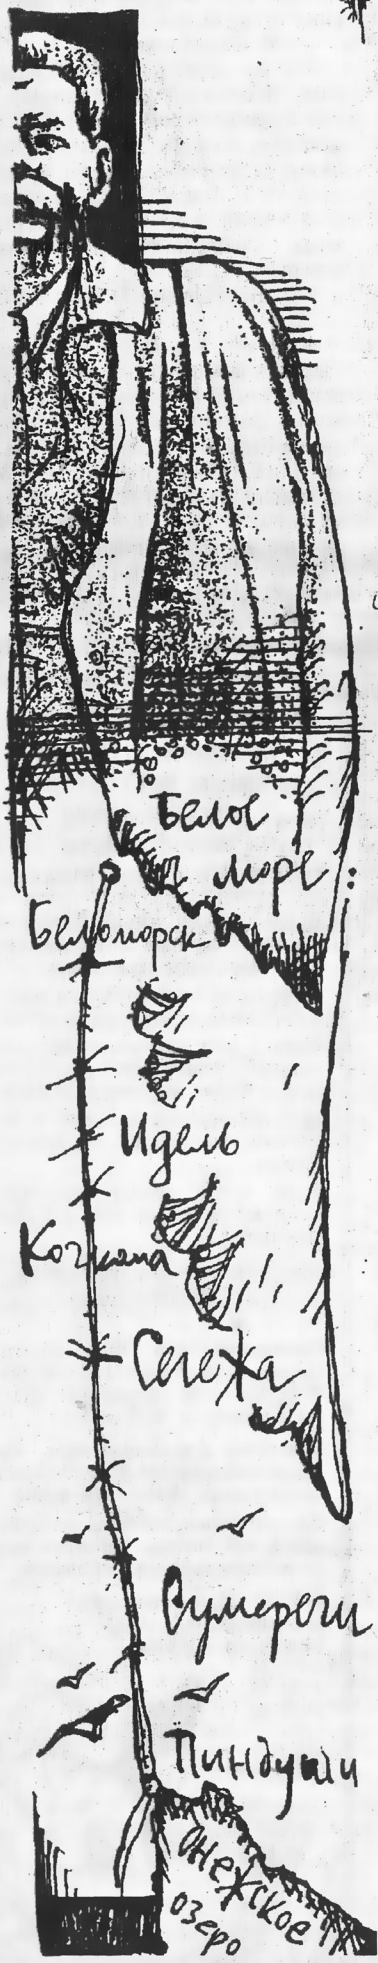 Белое
море
Беломорск
Идель
Кочкома
Сегежа
Сумеречи
Пиндуши
Онежское
озеро